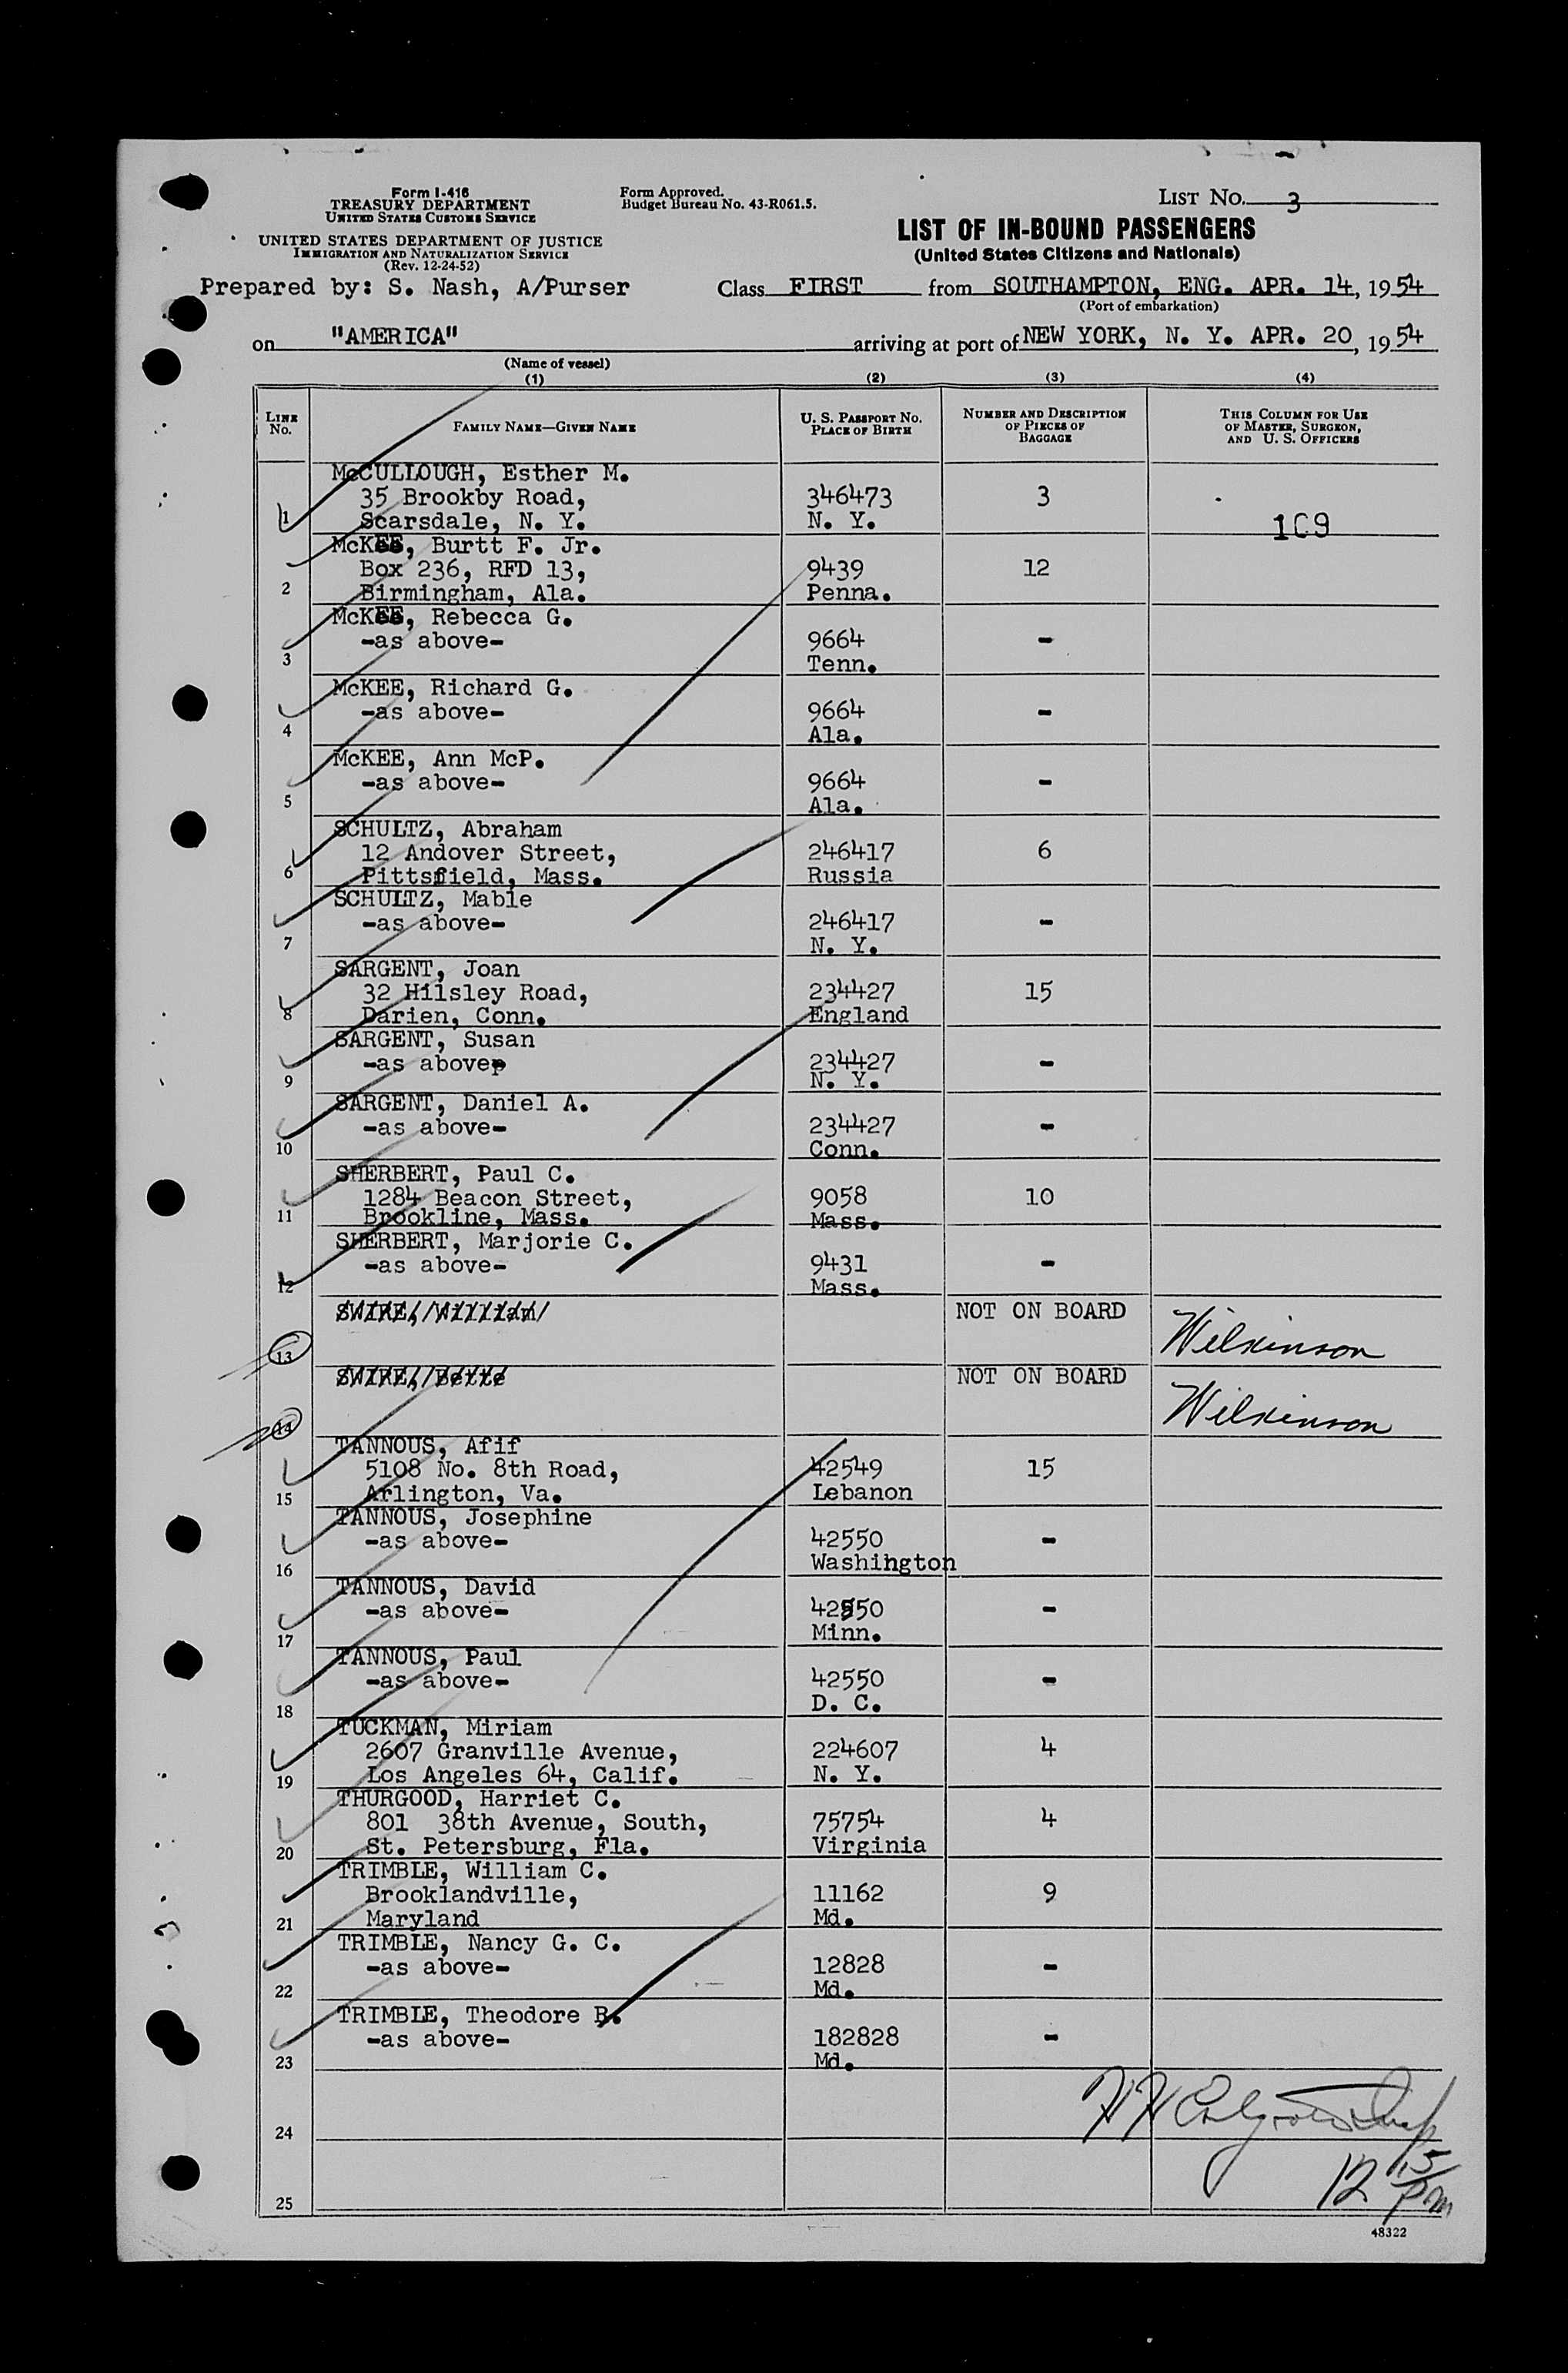 Form I-416
TREASURY DEPARTMENT
UNITED STATES CUSTOMS SERVICE
UNITED STATES DEPARTMENT OF JUSTICE
IMMIGRATION AND NATURALIZATION SERVICE
(Rev. 12-24-52)
Form Approved.
Budget Bureau No. 43-R061.5.
LIST NO. 3
LIST OF IN-BOUND PASSENGERS
(United States Citizens and Nationals)
Prepared by: S. Nash, A/Purser
Class FIRST from SOUTHAMPTON, ENG. APR. 14, 1954
(Port of embarkation)
on "AMERICA" arriving at port of NEW YORK, N. Y. APR. 20, 1954
(Name of vessel)
(1) (2) (3) (4)
LINE NO.
FAMILY NAME—GIVEN NAME
U. S. PASSPORT NO.
PLACE OF BIRTH
NUMBER AND DESCRIPTION
OF PIECES OF
BAGGAGE
THIS COLUMN FOR USE
OF MASTER, SURGEON,
AND U. S. OFFICERS
McCULLOUGH, Esther M.
35 Brookby Road, 346473 3
1 Scarsdale, N. Y. N. Y. 109
McKEE, Burtt F. Jr.
Box 236, RFD 13, 9439 12
2 Birmingham, Ala. Penna.
McKEE, Rebecca G.
-as above- 9664 -
3 Tenn.
McKEE, Richard G.
-as above- 9664 -
4 Ala.
McKEE, Ann McP.
-as above- 9664 -
5 Ala.
SCHULTZ, Abraham
12 Andover Street, 246417 6
6 Pittsfield, Mass. Russia
SCHULTZ, Mable
-as above- 246417 -
7 N. Y.
SARGENT, Joan
32 Hilsley Road, 234427 15
8 Darien, Conn. England
SARGENT, Susan
-as abovep 234427 -
9 N. Y.
SARGENT, Daniel A.
-as above- 234427 -
10 Conn.
SHERBERT, Paul C.
1284 Beacon Street, 9058 10
11 Brookline, Mass. Mass.
SHERBERT, Marjorie C.
-as above- 9431 -
12 Mass.
SWIRE, William NOT ON BOARD
13 Wilkinson
SWIRE, Bette NOT ON BOARD
14 Wilkinson
TANNOUS, Afif
5108 No. 8th Road, 42549 15
15 Arlington, Va. Lebanon
TANNOUS, Josephine
-as above- 42550 -
16 Washington
TANNOUS, David
-as above- 42550 -
17 Minn.
TANNOUS, Paul
-as above- 42550 -
18 D. C.
TUCKMAN, Miriam
2607 Granville Avenue, 224607 4
19 Los Angeles 64, Calif. N. Y.
THURGOOD, Harriet C.
801 38th Avenue, South, 75754 4
20 St. Petersburg, Fla. Virginia
TRIMBLE, William C.
Brooklandville, 11162 9
21 Maryland Md.
TRIMBLE, Nancy G. C.
-as above- 12828 -
22 Md.
TRIMBLE, Theodore B.
-as above- 182828 -
23 Md.
24
12 15 pm
25
48322